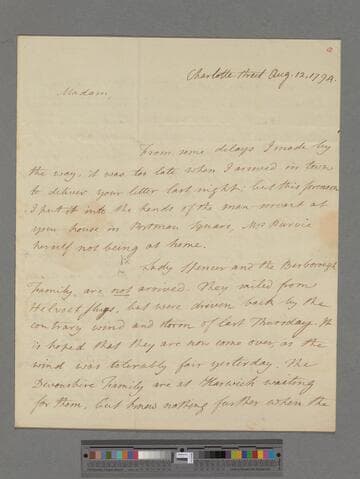 Charlotte Street Aug. 12, 1794.
Madam,
From some delays I made by
the way, it was too late when I arrived in town
to deliver your letter last night: but this forenoon
I put it into the hands of the man servant at
your house in Portman Square, Mrs
herself not being at home.
Lady Spencer and the Besborough
Family are not arrived. They sailed from
Helvoetsluys, but were driven back by the
contrary wind and storm of last Thursday. It
is hoped that they are now come over, as the
wind was tolerably fair yesterday. The
Devonshire Family are at Harwich waiting
for them, but know nothing further when the